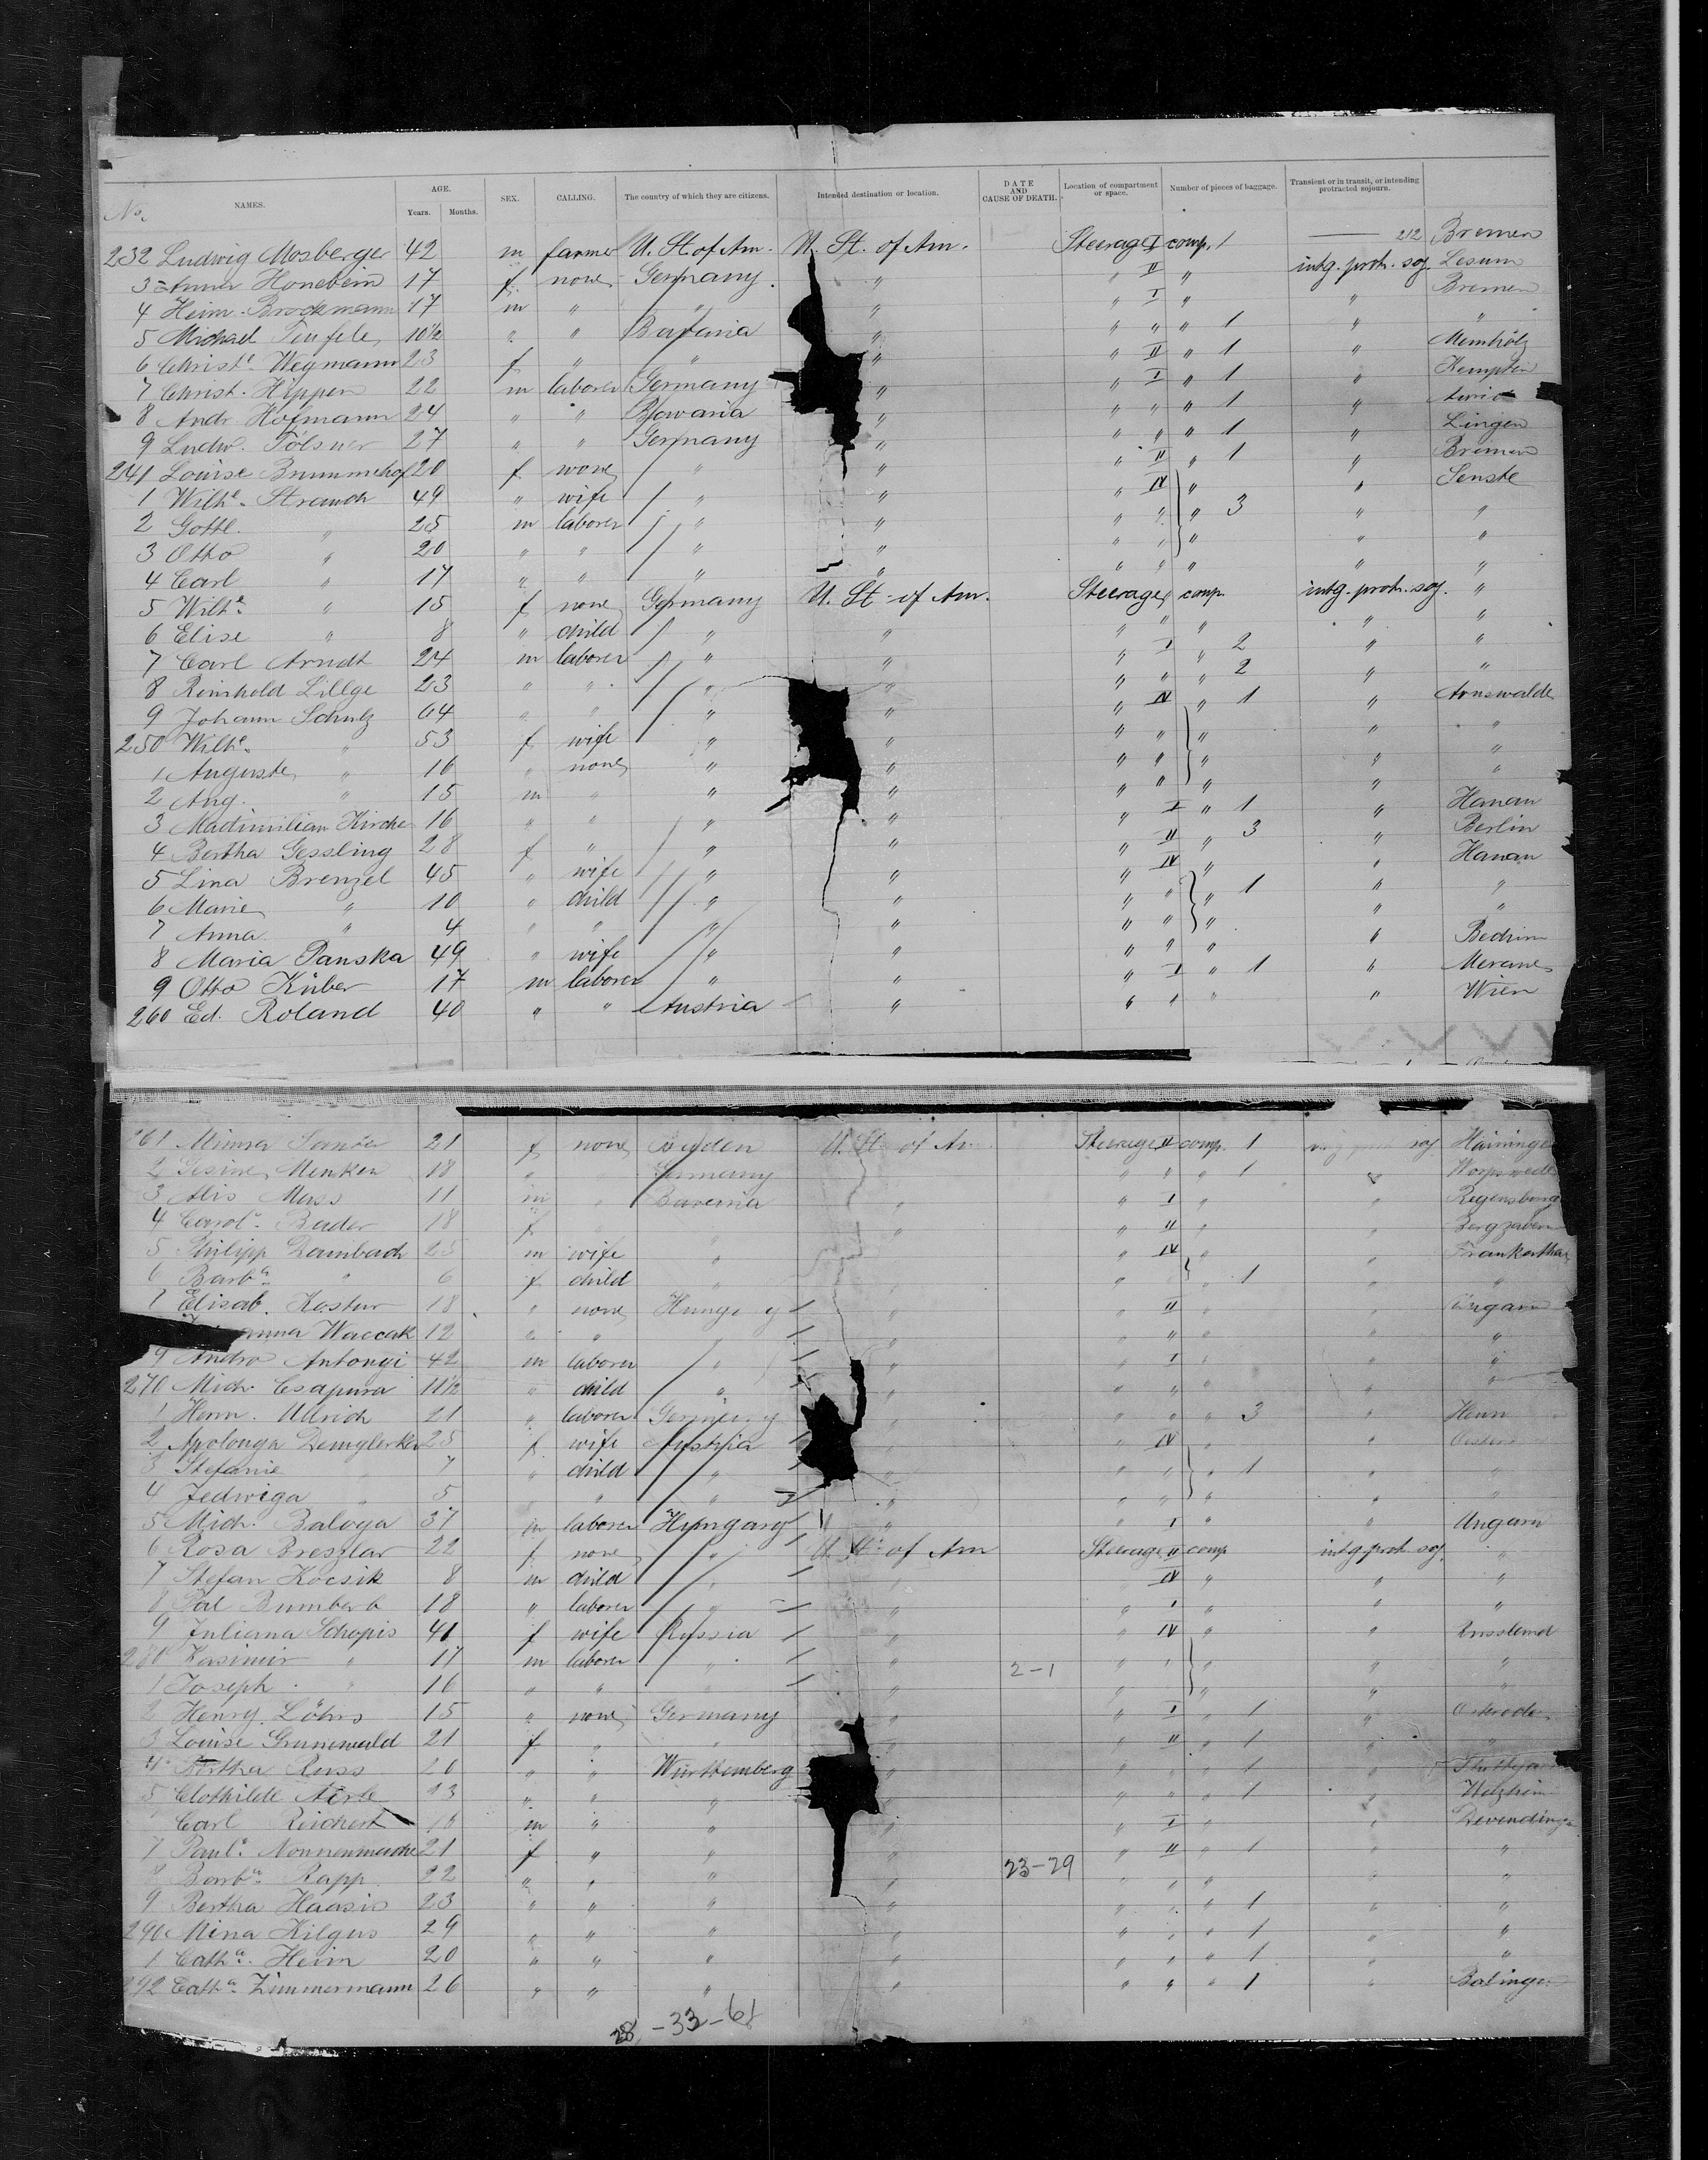 No. NAMES. AGE. Years. Months. SEX. CALLING. The country of which they are citizens. Intended destination or location. DATE AND CAUSE OF DEATH. Location of compartment or space. Number of pieces of baggage. Transient or in transit, or intending protracted sojourn.
232 Ludwig Mosberger 42 m farmer U. St. of Am. U. St. of Am. Steerage I comp. 1 212 Bremen
3 Anna Honebein 17 f none Germany " " II " intg. prot. soj. Lesum
4 Heinr. Brockmann 17 m " " " " I " " Bremen
5 Michael Teufele 10½ " " Bavaria " " " " 1 " "
6 Christe. Wegmann 23 f " " " " II " 1 " Memhölz
7 Christ. Hippen 22 m laborer Germany " " I " 1 " Kempten
8 Andr. Hofmann 24 " " Bavaria " " " " 1 "
9 Ludw. Tölsner 27 " " Germany " " " " 1 " Lingen
241 Louise Brummehof 20 f none " " " II " 1 " Bremen
1 Wilhe. Strauch 49 " wife " " " IV " " Senske
2 Gottl. " 25 m laborer " " " " " 3 " "
3 Otto " 20 " " " " " " " " "
4 Carl " 17 " " " " " " " " "
5 Wilhe. " 15 f none Germany U. St. of Am. Steerage comp. intg. prot. soj. "
6 Elise " 8 " child " " " " " " "
7 Carl Arndt 24 m laborer " " " I " 2 " "
8 Reinhold Lillge 23 " " " " " " " 2 " "
9 Johann Schulz 64 " " " " " IV " 1 " Arnswalde
250 Wilhe. " 53 f wife " " " " " " "
1 Auguste " 16 " none " " " " " " "
2 Aug. " 15 m " " " " " " " "
3 Maximilian Kirche 16 " " " " " I " 1 " Hanau
4 Bertha Gessling 28 f " " " " II " 3 " Berlin
5 Lina Brenzel 45 " wife " " " IV " " Hanau
6 Marie " 10 " child " " " " " 1 " "
7 Anna " 4 " " " " " " " " "
8 Maria Panska 49 " wife " " " " " " Bechim
9 Otto Küber 17 m laborer " " " I " 1 " Merane
260 Ed. Roland 40 " " Austria " " " " " Wien
261 Minna 21 f none Baden U. St. of Am Steerage II comp. 1 soj.
2 Gesine Menken 18 " " Germany " " " 1 " Worpswede
3 Alis Mass 11 m " Bavaria " " I " " Regensburg
4 Carole. Bader 18 f " " " " II " " Bergzabern
5 Philipp Dambach 25 m wife " " IV " "
6 Barba. " 6 f child " " " 1 " "
7 Elisab. Kostur 18 " none Hungary " " II " " Ungarn
anna Waccak 12 " " " " " " " "
9 Andro Antonyi 42 m laborer " " " I " " "
270 Mich. Csapura 11½ " child " " " " " " "
1 Herm. Ullrich 21 " laborer Germany " " " " 3 "
2 Apolonya 25 f wife Austria " IV " "
3 Stefanie " 7 " child " " " " " 1 " "
4 Jedwiga " 5 " " " " " " " " "
5 Mich. Baloga 37 m laborer Hungary " " I " " Ungarn
6 Rosa Breszlar 22 f none " U. St. of Am Steerage II comp intg. prot. soj. "
7 Stefan Kocsik 8 m child " " IV " " "
8 Pal 18 " laborer " " " I " " "
9 Juliana Schopis 41 f wife Russia " " IV " " Russland
280 Kasimir " 17 m laborer " " 2-1 " " " " "
1 Joseph " 16 " " " " " " " " "
2 Henry Löhrs 15 " none Germany " " I " 1 " Osterode
3 Louise Grunewald 21 f " " " " II " 1 " "
4 Bertha Russ 20 " " Württemberg " " " " 1 "
5 Clothilde 23 " " " " " " 1 " Welzheim
Carl Reichert 16 m " " " " I " "
7 Paule. Nonnenmacher 21 f " " " " II " 1 " "
8 Barba. Rapp 22 " " " " 23-29 " " " " "
9 Bertha Haasis 23 " " " " " " " 1 " "
290 Mina Kilgus 29 " " " " " " " 1 " "
1 Catha. Heim 20 " " " " " " " 1 " "
292 Catha. Zimmermann 26 " " " " " " " 1 " Balingen
28-33-61